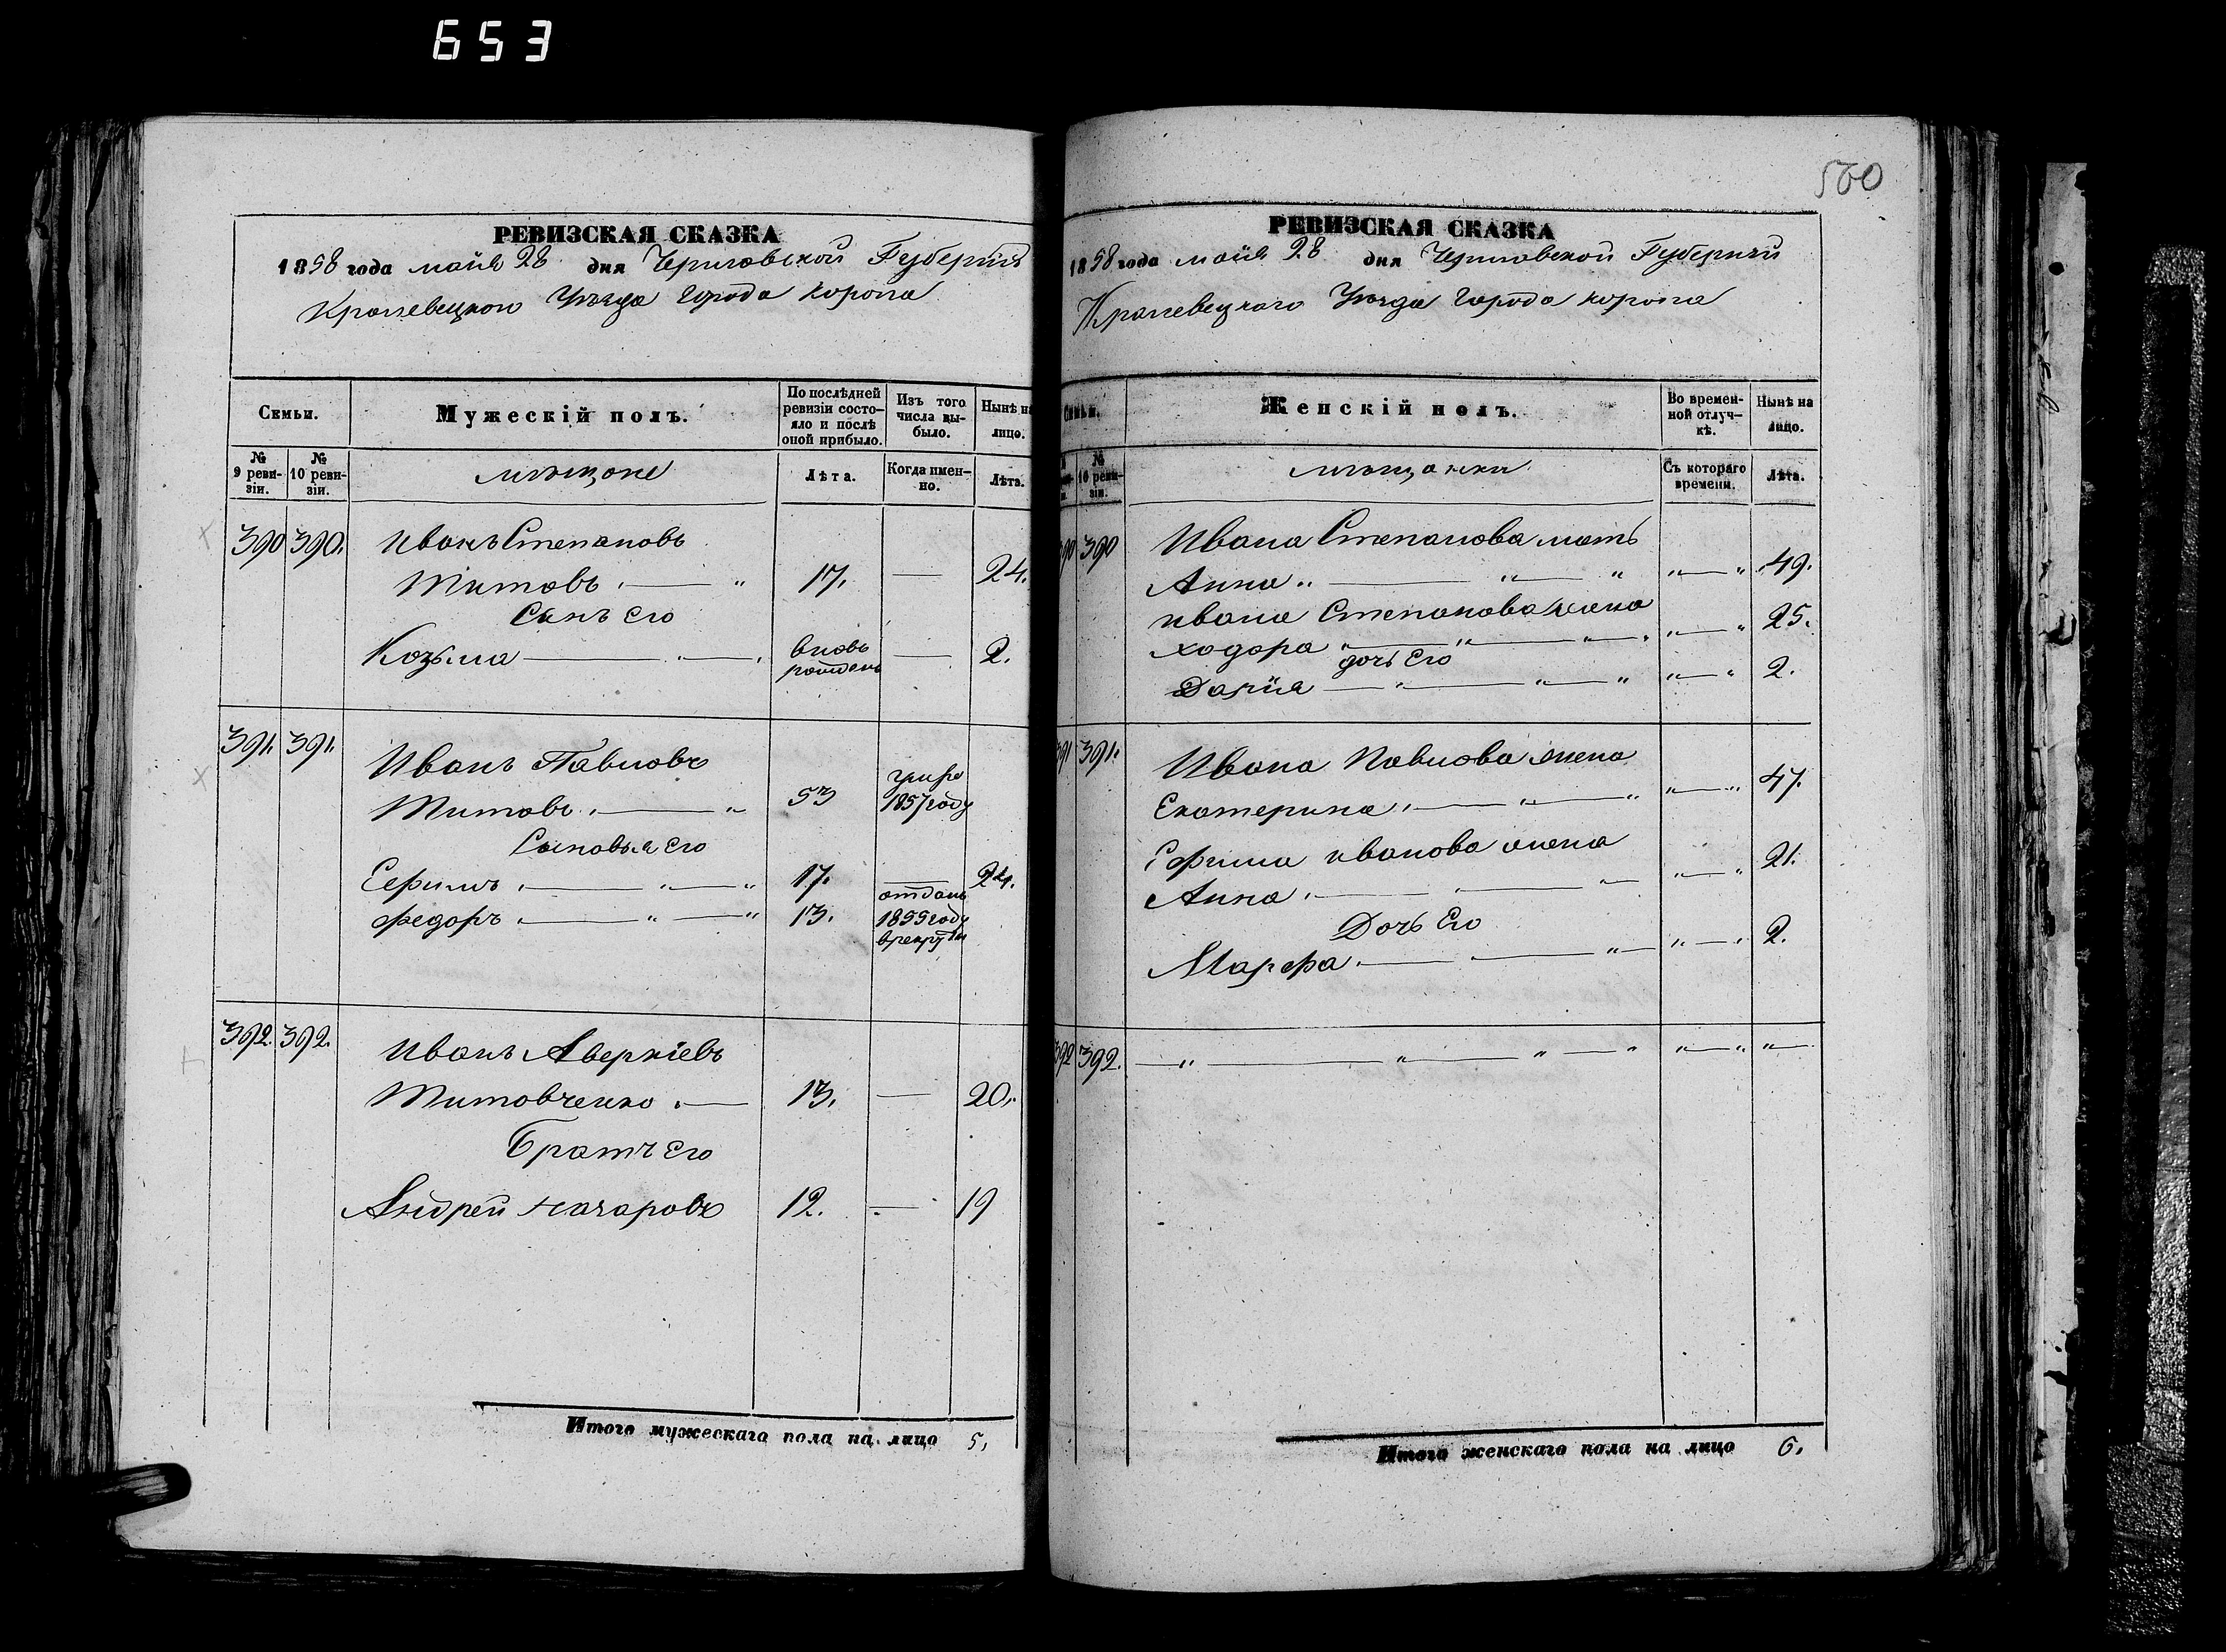 653
560
РЕВИЗСКАЯ СКАЗКА
1858 года мая 28 дня Черниговской Губернiи
Кролевецкого Уѣзда Города Коропа
Семьи.
Мужескій полъ.
По послѣдней ревизіи состояло и послѣ оной прибыло.
Изъ того числа выбыло.
Нынѣ на лицо.
№ 9 ревизіи.
№ 10 ревизіи.
мѣщане
Лѣта.
Когда именно.
Лѣта.
390 390. Иванъ Степановъ
Титовъ 17. — 24.
Сынъ его
Козьма вновь рожденъ — 2.
391. 391. Иванъ Павловъ
Титовъ 53 1857 году
Сыновья его
Ефимъ 17. — 24.
Федоръ 13. отданъ 1855 году в рекруты
392. 392. Иванъ Аверкіевъ
Титовченко 13. — 20.
Братъ его
Андрей 12. — 19
Итого мужескаго пола на лицо 5.
РЕВИЗСКАЯ СКАЗКА
1858 года мая 28 дня Черниговской Губернии
Кролевецкаго Уѣзда Города Коропа
Семьи.
Женскій полъ.
Во временной отлучкѣ.
Нынѣ на лицо.
№ 10 ревизіи.
мѣщанки
Съ котораго времени.
Лѣта.
390 390 Ивана Степанова мать
Анна 49.
Ивана Степанова жена
Ходора 25.
дочь его
Дарiя 2.
391 391. Ивана Павлова жена
Екатерина 47.
Ефима Иванова жена
Анна 21.
Дочь его
Марфа 2.
392 392.
Итого женскаго пола на лицо 6.